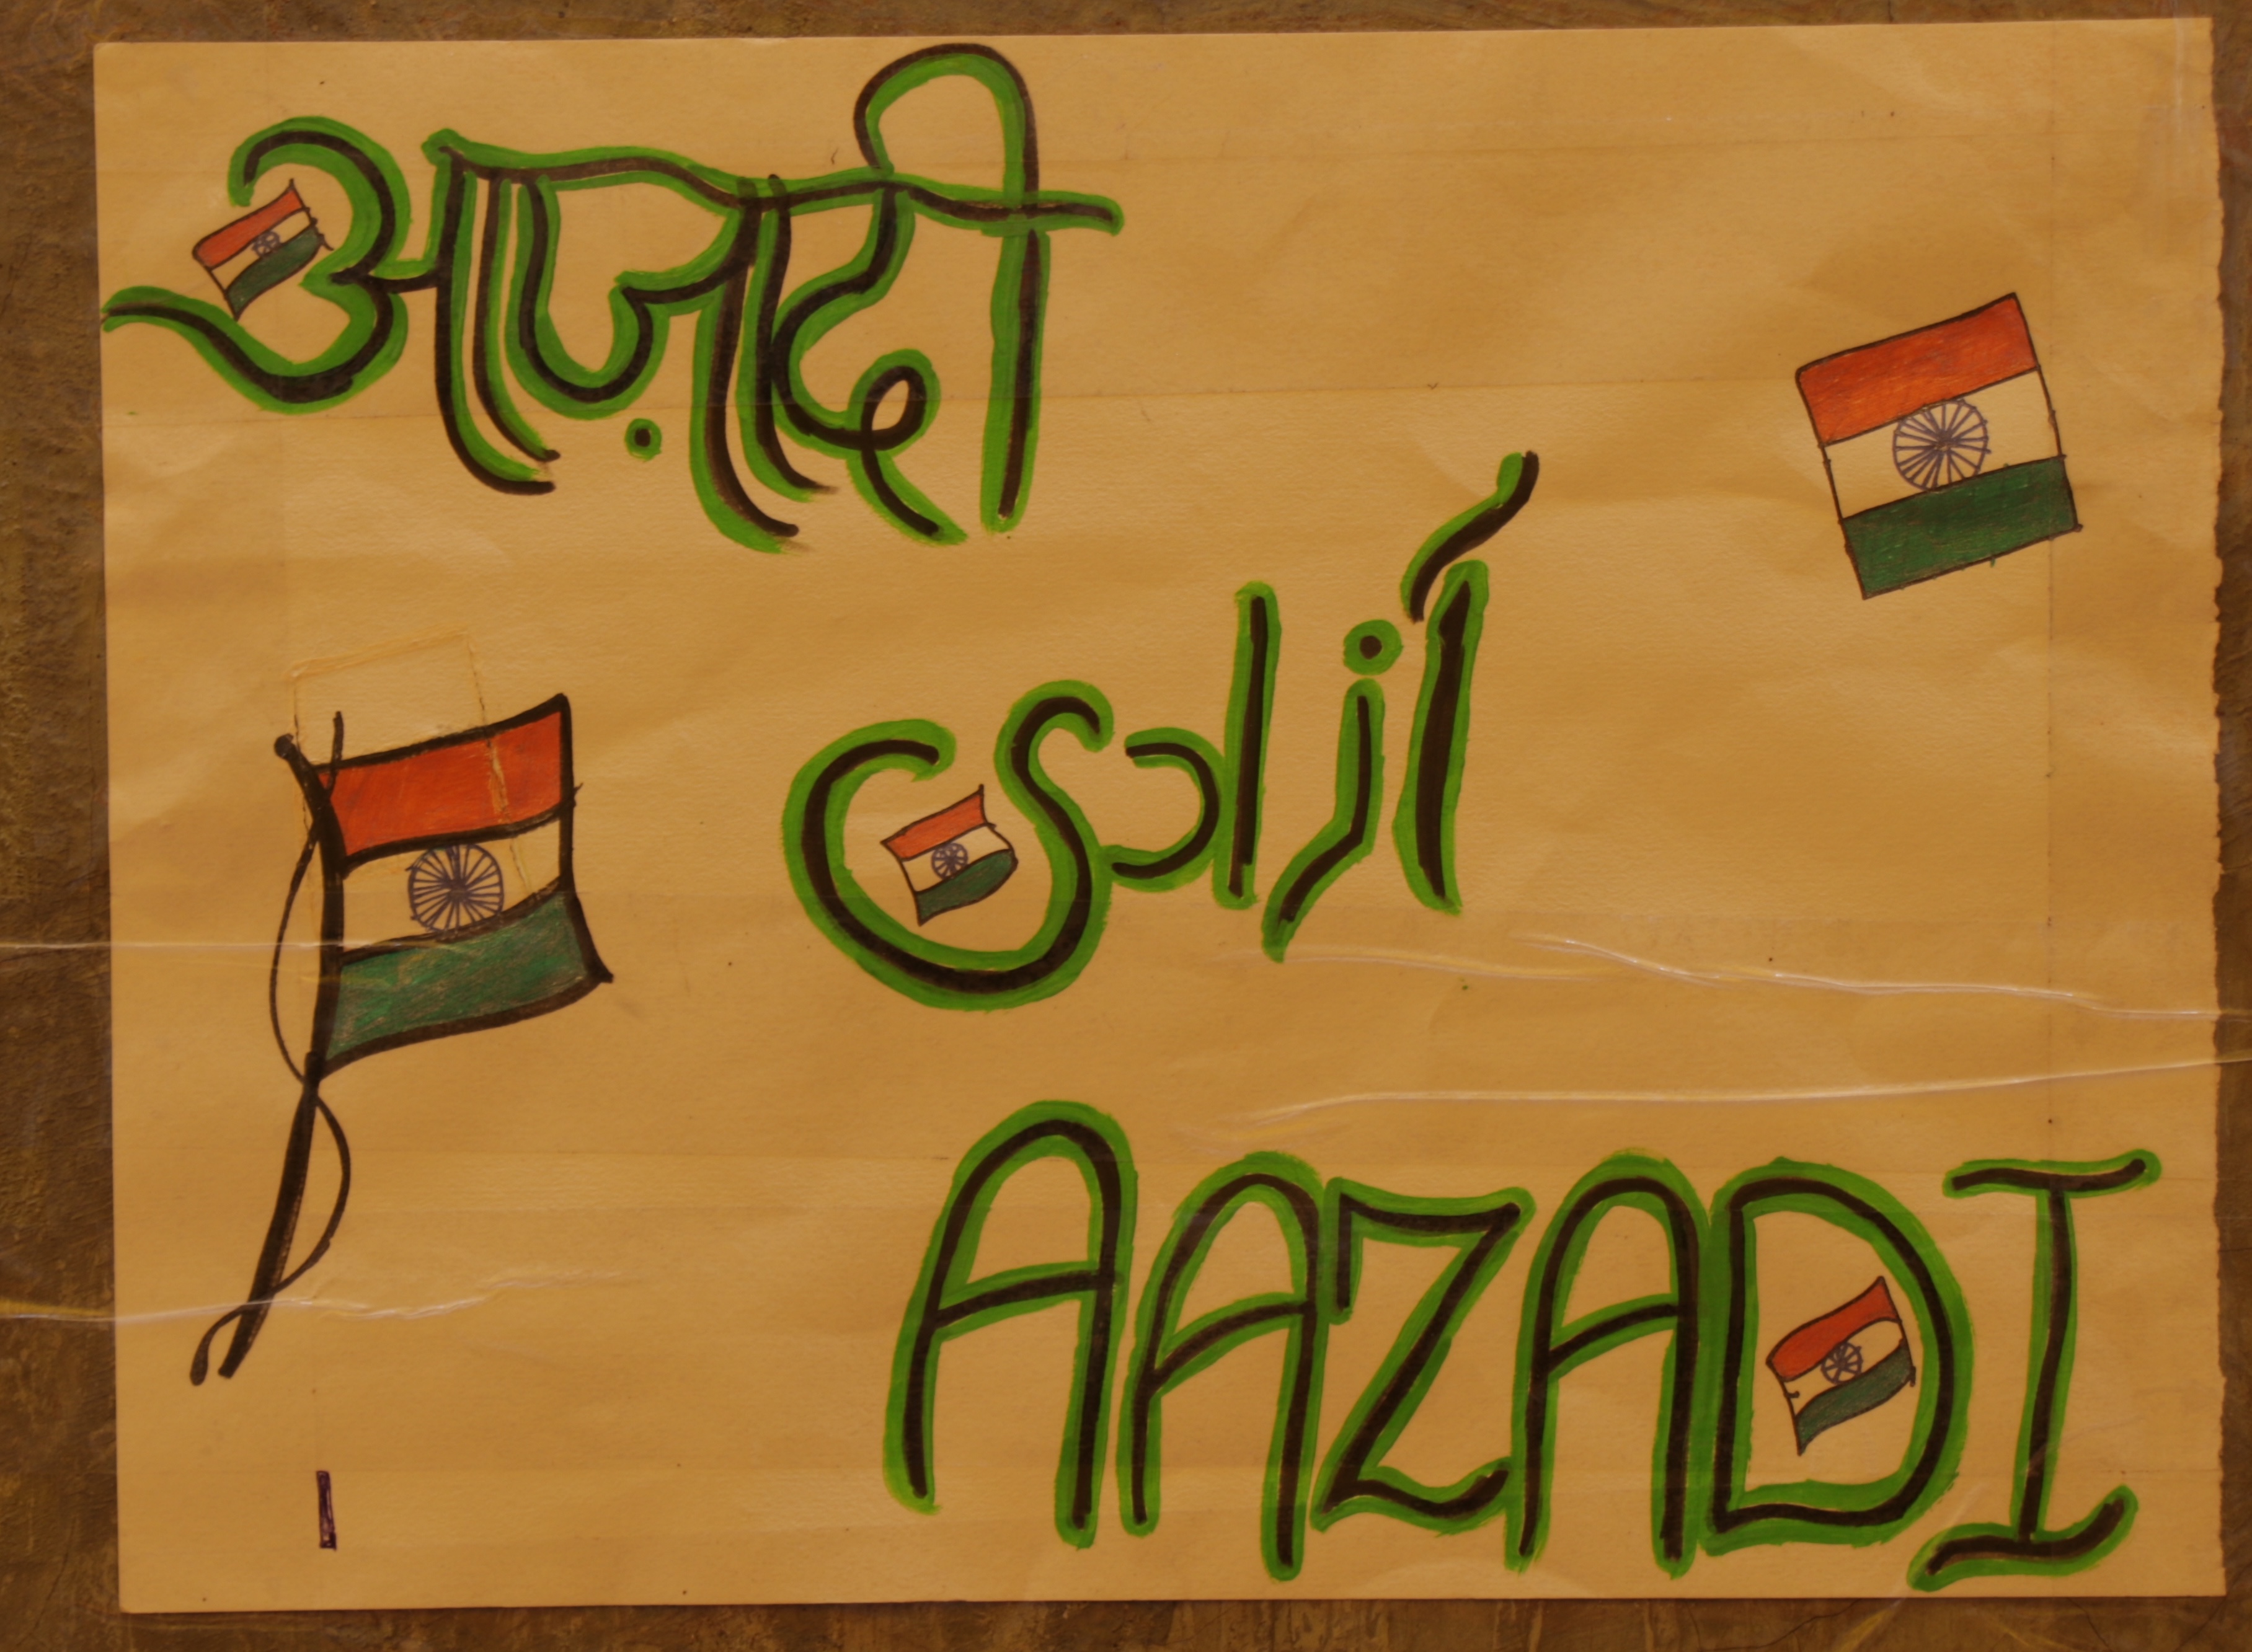 आज़ादी
آزادی
AAZADI